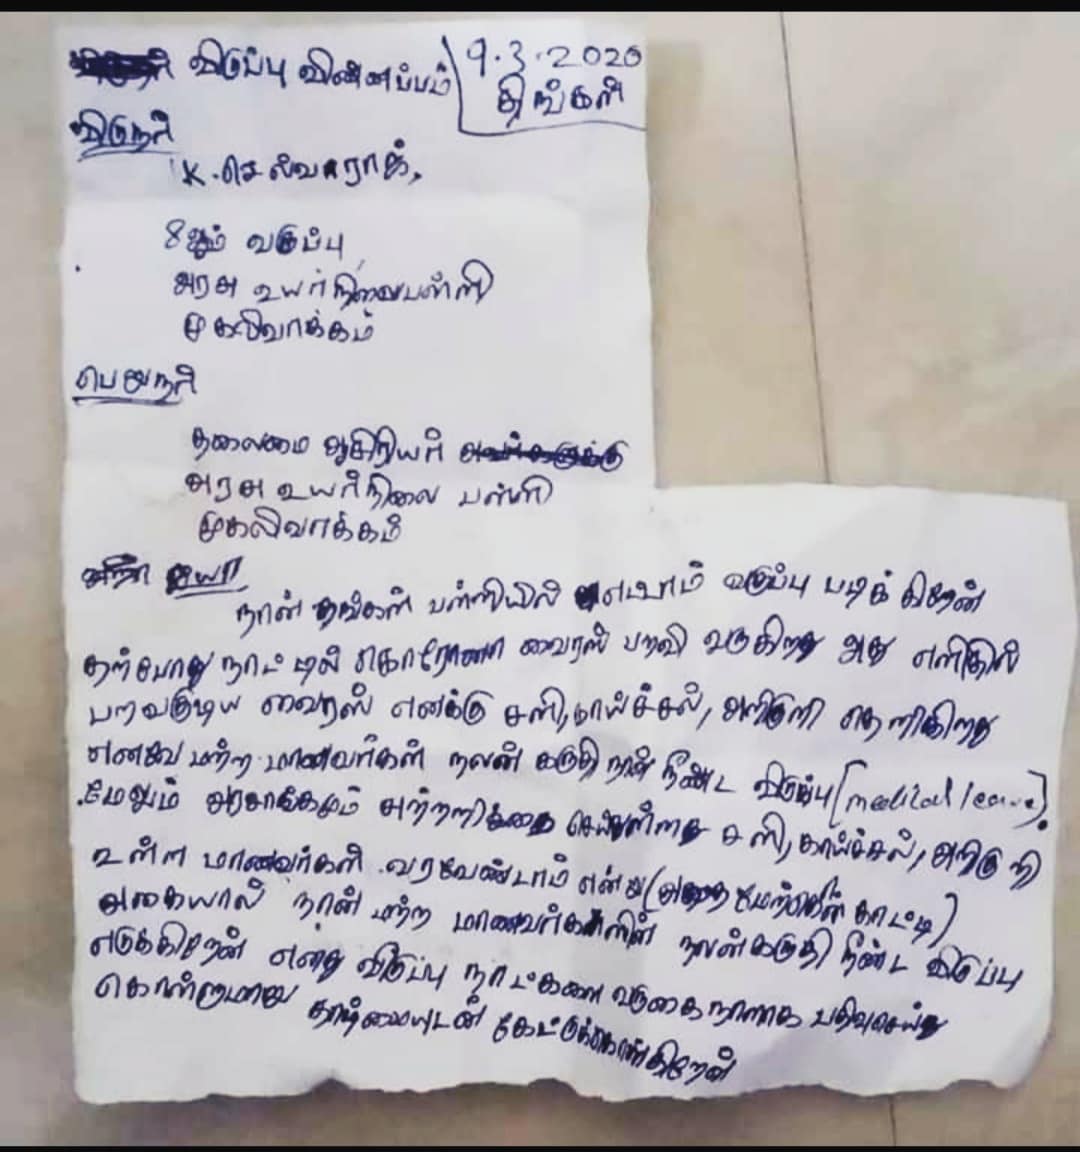 விடுப்பு விண்ணப்பம்
9.3.2020
திங்கள்
விடுநர்
K.செல்வராஜ்,
8ஆம் வகுப்பு
அரசு உயர்நிலைபள்ளி
முகலிவாக்கம்
பெறுநர்
தலைமை ஆசிரியர்
அரசு உயர்நிலை பள்ளி
முகலிவாக்கம்
ஐயா
நான் தங்கள் பள்ளியில் எட்டாம் வகுப்பு படிக்கிறேன்
தற்போது நாட்டில் கொரோனா வைரஸ் பரவி வருகிறது அது எளிதில்
பரவகுடிய வைரஸ் எனக்கு சளி,காய்ச்சல், அறிகுறி தெறிகிறது
எனவே மற்ற மாணவர்கள் நலன் கருதி நான் நீண்ட விடுப்பு (medical leave).
மேலும் அரசாங்கமும் செய்துள்ளது சளி,காய்ச்சல்,அறிகுறி
உள்ள மாணவர்கள் வரவேண்டாம் என்று (அதை மேற்கோள் காட்டி)
அகையால் நான் மற்ற மாணவர்களின் நலன்கருதி நீண்ட விடுப்பு
எடுக்கிறேன் எனது விடுப்பு நாட்களை வருகை நாளாக பதிவுசெய்து
கொள்ளுமாறு தாழ்மையுடன் கேட்டுக்கொள்கிறேன்